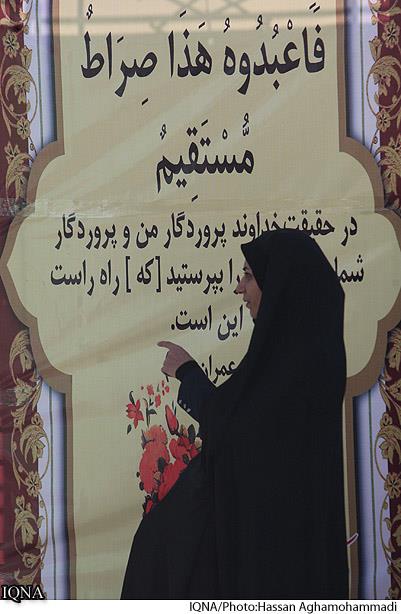 فَاعْبُدُوهُ هَذَا صِرَاطٌ
مُّسْتَقِيمٌ
در حقیقت خداوند پروردگار من و پروردگار
شما را بپرستید [که ] راه راست
این است.
عمران
IQNA
IQNA
IQNA/Photo:Hassan Aghamohammadi